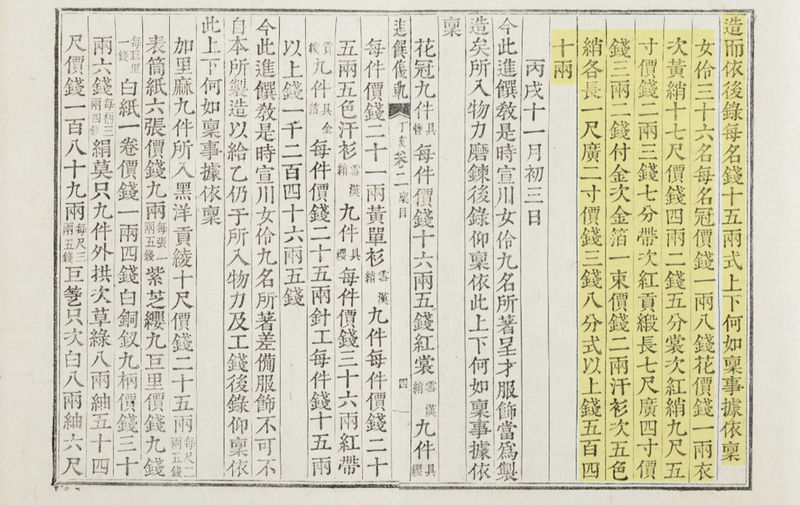 造而依後錄每名錢十五兩式上下何如稟事據依稟
女伶三十六名每名冠價錢一兩八錢花價錢一兩衣
次黃綃十七尺價錢四兩二錢五分裳次紅綃九尺五
寸價錢二兩三錢七分帶次紅貢緞長七尺廣四寸價
錢三兩二錢付金次金箔一束價錢二兩汗衫次五色
綃各長一尺廣二寸價錢三錢八分式以上錢五百四
十兩
丙戌十一月初三日
今此進饌敎是時宣川女伶九名所著呈才服飾當爲製
造矣所入物力磨鍊後錄仰稟依此上下何如稟事據依
稟
花冠九件具每件價錢十六兩五錢紅裳雲漢綃九件具纓
進饌儀軌 丁亥 卷二 稟目 四
每件價錢二十一兩黃單衫雲漢綃九件每件價錢二十
五兩五色汗衫雲漢綃九件具纓每件價錢三十六兩紅帶
貢緞九件具金箔每件價錢二十五兩針工每件錢十五兩
以上錢一千二百四十六兩五錢
今此進饌敎是時宣川女伶九名所著差備服飾不可不
自本所製造以給乙仍于所入物力及工錢後錄仰稟依
此上下何如稟事據依稟
加里麻九件所入黑洋貢綾十尺價錢二十五兩每尺二兩五錢
表筒紙六張價錢九兩每張一兩五錢紫芝纓九巨里價錢九錢
每巨里一錢白紙一卷價錢一兩四錢白銅釵九柄價錢三十
兩六錢每柄三兩四錢絹莫只九件外拱次草綠八兩紬五十四
尺價錢一百八十九兩每尺三兩五錢巨쁠只次白八兩紬六尺